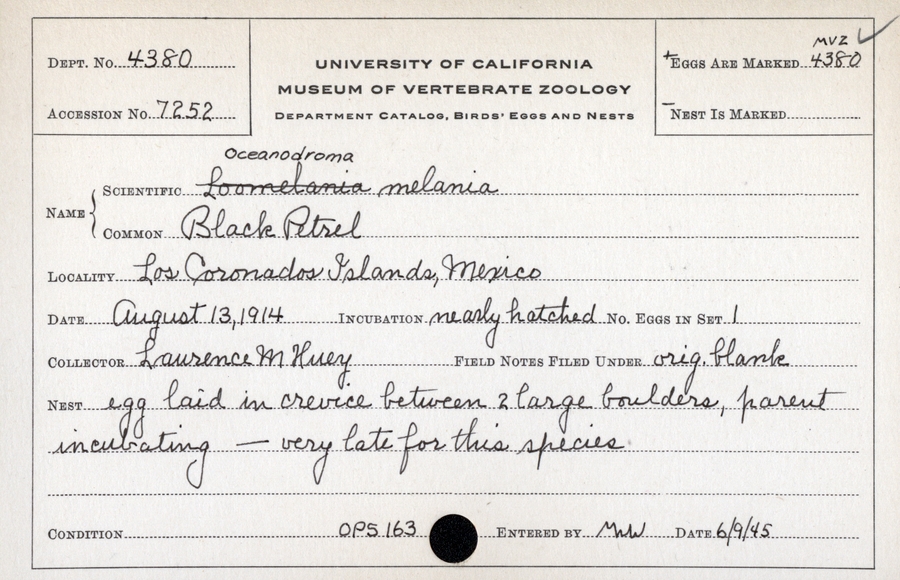 MVZ
DEPT. No. 4380
UNIVERSITY OF CALIFORNIA
+ EGGS ARE MARKED 4380
MUSEUM OF VERTEBRATE ZOOLOGY
ACCESSION No. 7252
DEPARTMENT CATALOG, BIRDS' EGGS AND NESTS
– NEST IS MARKED
Oceanodroma
NAME { SCIENTIFIC Loomelania melania
COMMON Black Petrel
LOCALITY Los Coronados Islands, Mexico
DATE August 13, 1914 INCUBATION nearly hatched No. EGGS IN SET 1
COLLECTOR Laurence M Huey FIELD NOTES FILED UNDER orig. blank
NEST egg laid in crevice between 2 large boulders, parent
incubating — very late for this species
CONDITION OPS 163 ENTERED BY DATE 6/9/45